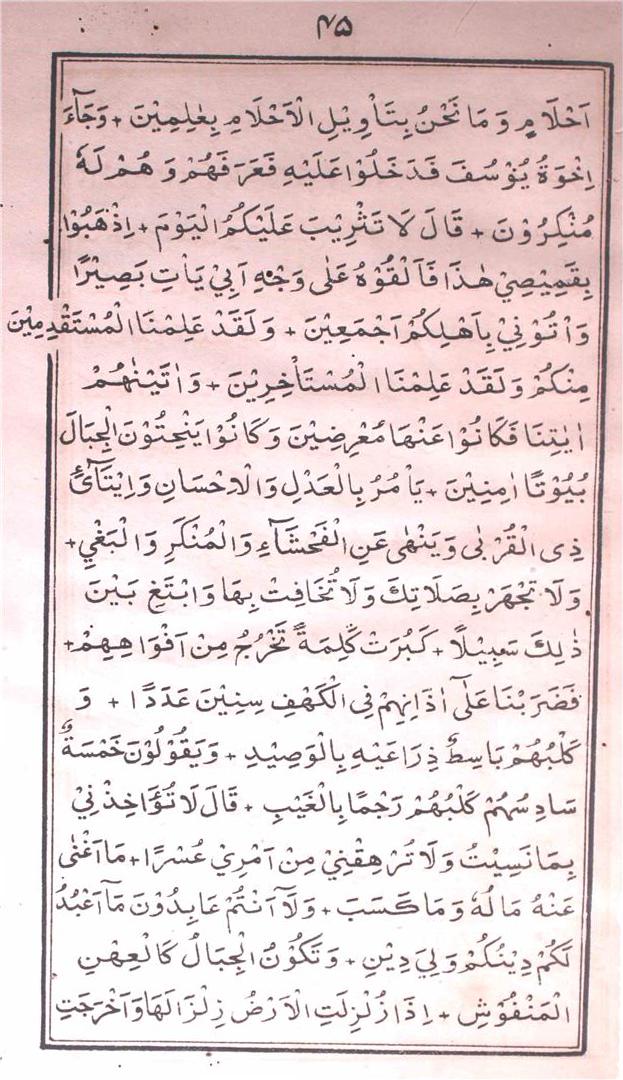 ۴۵
اَحْلَامٍ وَ مَا نَحْنُ بِتَاْوِيْلِ الْاَحْلَامِ بِعٰلِمِيْنَ + وَجَآءَ
اِخْوَةُ يُوْسُفَ فَدَخَلُوْا عَلَيْهِ فَعَرَفَهُمْ وَ هُمْ لَهٗ
مُنْكِرُوْنَ + قَالَ لَا تَثْرِيْبَ عَلَيْكُمُ الْيَوْمَ + اِذْهَبُوْا
بِقَمِيْصِيْ هٰذَا فَاَلْقُوْهُ عَلٰى وَجْهِ اَبِيْ يَاْتِ بَصِيْرًا
وَاْتُوْنِيْ بِاَهْلِكُمْ اَجْمَعِيْنَ + وَ لَقَدْ عَلِمْنَا الْمُسْتَقْدِمِيْنَ
مِنْكُمْ وَ لَقَدْ عَلِمْنَا الْمُسْتَاْخِرِيْنَ + وَ اٰتَيْنٰهُمْ
اٰيٰتِنَا فَكَانُوْا عَنْهَا مُعْرِضِيْنَ وَ كَانُوْا يَنْحِتُوْنَ الْجِبَالَ
بُيُوْتًا اٰمِنِيْنَ + يَاْمُرُ بِالْعَدْلِ وَالْاِحْسَانِ وَاِيْتَآئِ
ذِى الْقُرْبٰى وَ يَنْهٰى عَنِ الْفَحْشَآءِ وَالْمُنْكَرِ وَ الْبَغْيِ +
وَ لَا تَجْهَرْ بِصَلَاتِكَ وَ لَا تُخَافِتْ بِهَا وَ ابْتَغِ بَيْنَ
ذٰلِكَ سَبِيْلًا + كَبُرَتْ كَلِمَةً تَخْرُجُ مِنْ اَفْوَاهِهِمْ +
فَضَرَبْنَا عَلٰٓى اٰذَانِهِمْ فِى الْكَهْفِ سِنِيْنَ عَدَدًا + وَ
كَلْبُهُمْ بَاسِطٌ ذِرَاعَيْهِ بِالْوَصِيْدِ + وَ يَقُوْلُوْنَ خَمْسَةٌ
سَادِسُهُمْ كَلْبُهُمْ رَجْمًا بِالْغَيْبِ + قَالَ لَا تُؤَاخِذْنِيْ
بِمَا نَسِيْتُ وَ لَا تُرْهِقْنِيْ مِنْ اَمْرِيْ عُسْرًا + مَا اَغْنٰى
عَنْهُ مَالُهٗ وَ مَا كَسَبَ + وَ لَآ اَنْتُمْ عَابِدُوْنَ مَآ اَعْبُدُ
لَكُمْ دِيْنُكُمْ وَ لِيَ دِيْنِ + وَ تَكُوْنُ الْجِبَالُ كَالْعِهْنِ
الْمَنْفُوْشِ + اِذَا زُلْزِلَتِ الْاَرْضُ زِلْزَالَهَا وَاَخْرَجَتِ